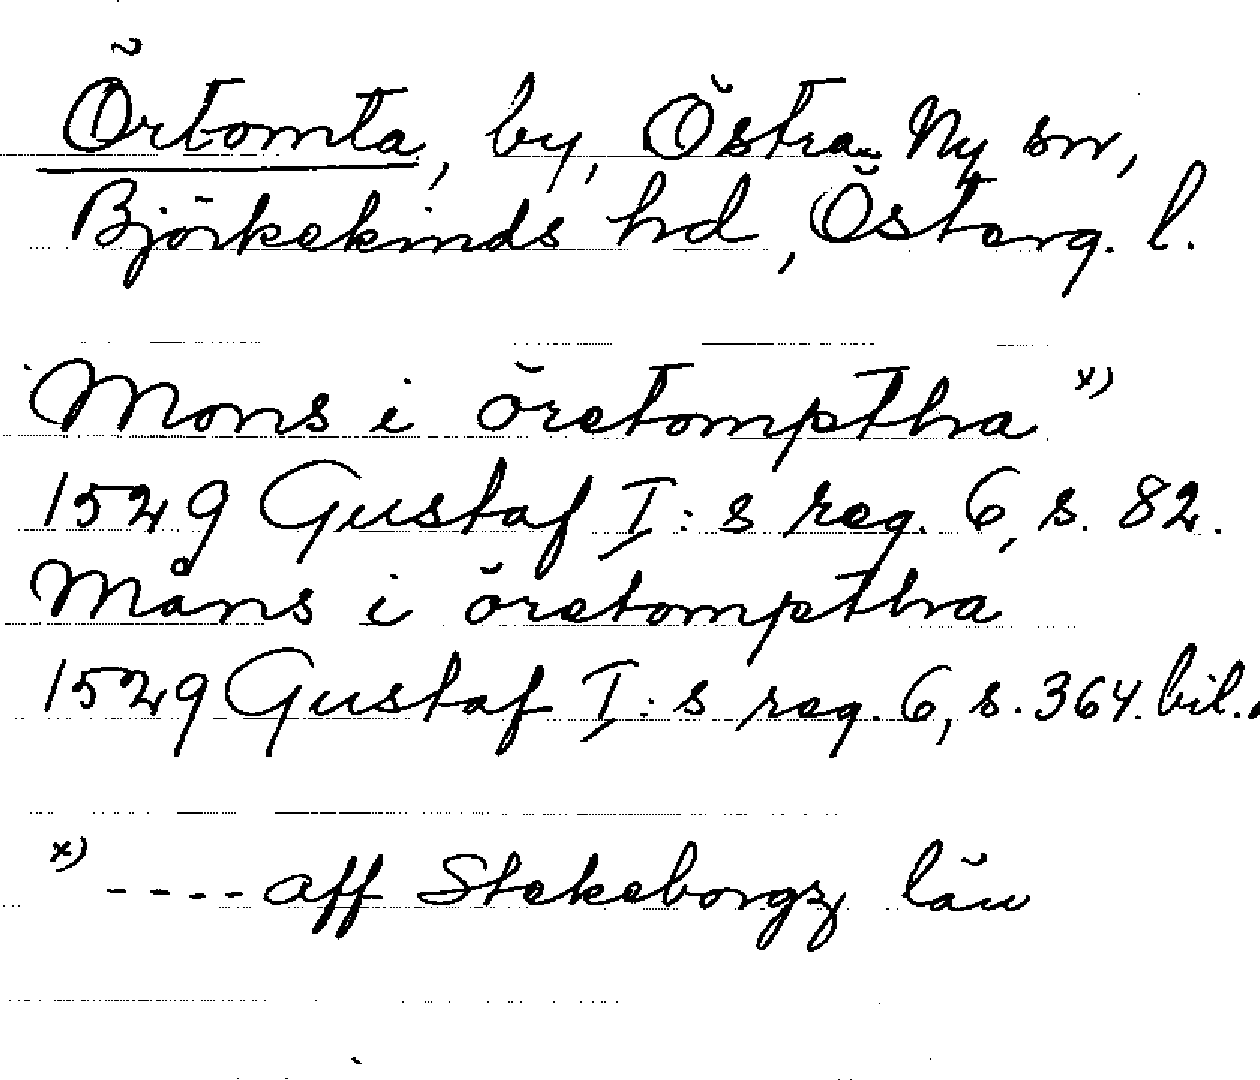 Örtomta, by, Östra Ny sn,
Björkekinds hd, Österg. l.
Mons i öretomptha x)
1529 Gustaf I:s reg. 6, s. 82.
Måns i öretomptha
1529 Gustaf I:s reg. 6, s. 364. bil.
x) ---- aff Stekeborgz län